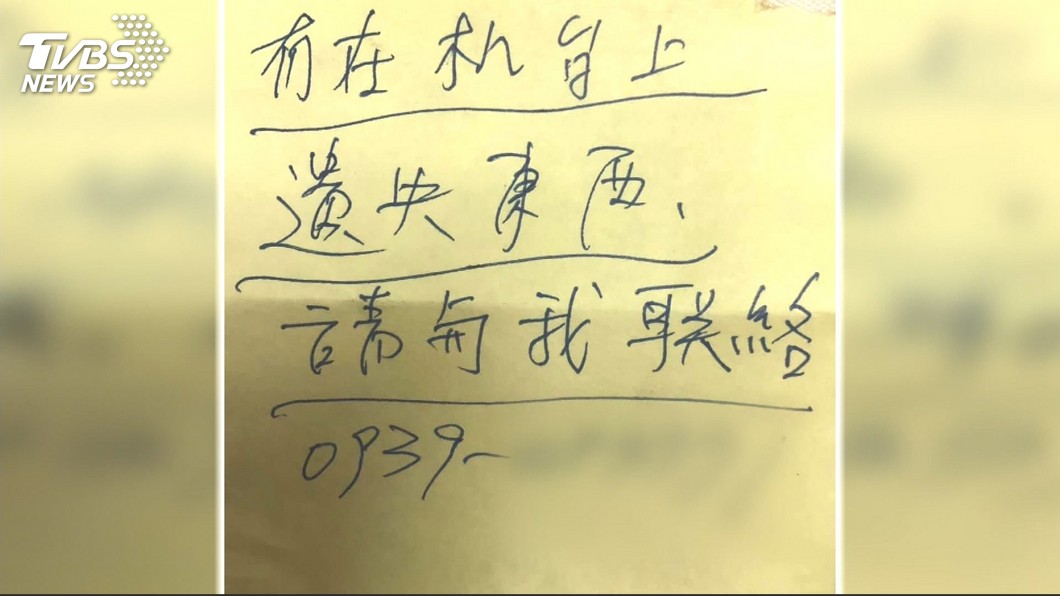 TVBS
NEWS
有在机台上
遺失東西、
請与我联絡
0939-